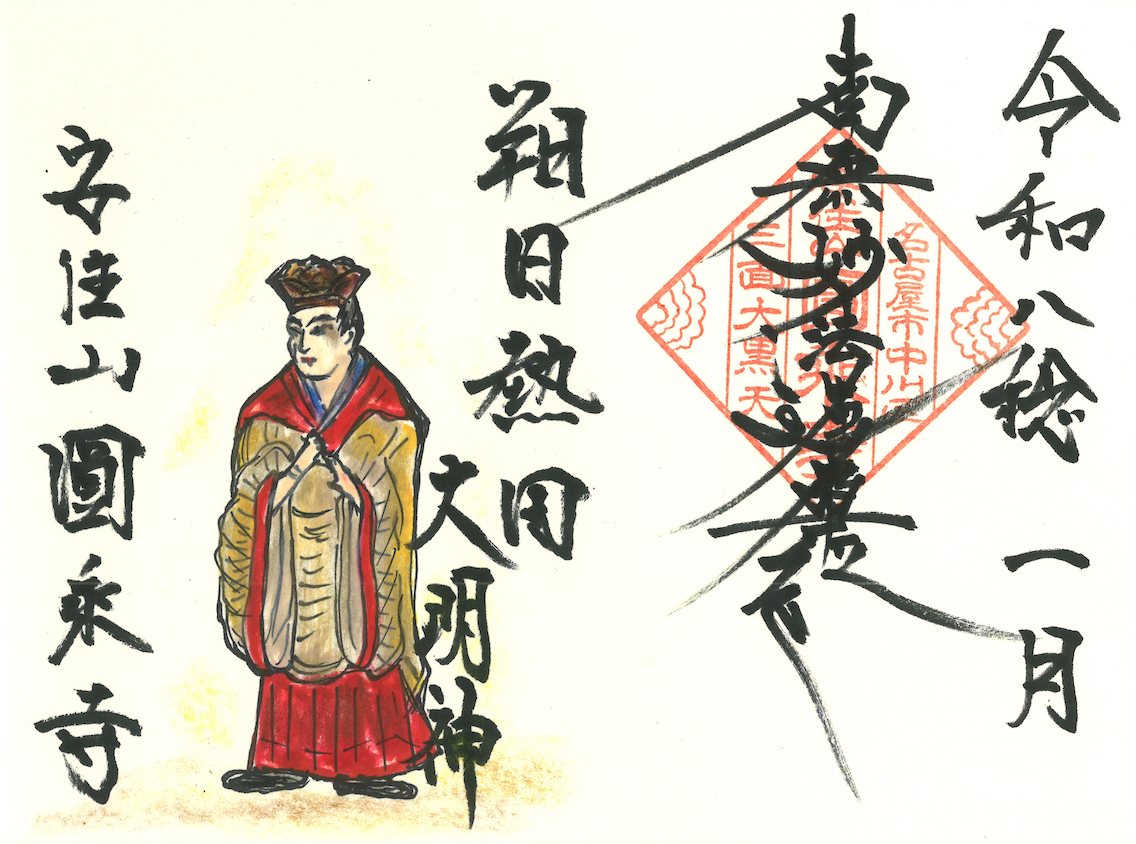 令和八稔 一月
南無妙法蓮華経
名古屋市中川区
三面大黒天
朔日熱田
大明神
安住山圓乗寺